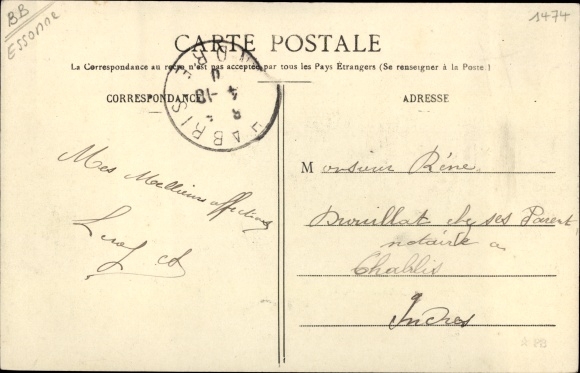 BB
Essonne
1474
CARTE POSTALE
La Correspondance au recto n'est pas acceptée par tous les Pays Étrangers (Se renseigner à la Poste.)
CORRESPONDANCE
ADRESSE
CHABRIS INDRE
Mes Meilleurs affections
Monsieur Réne
Drouillat chez ses Parents
notaire a
Chablis
Indres